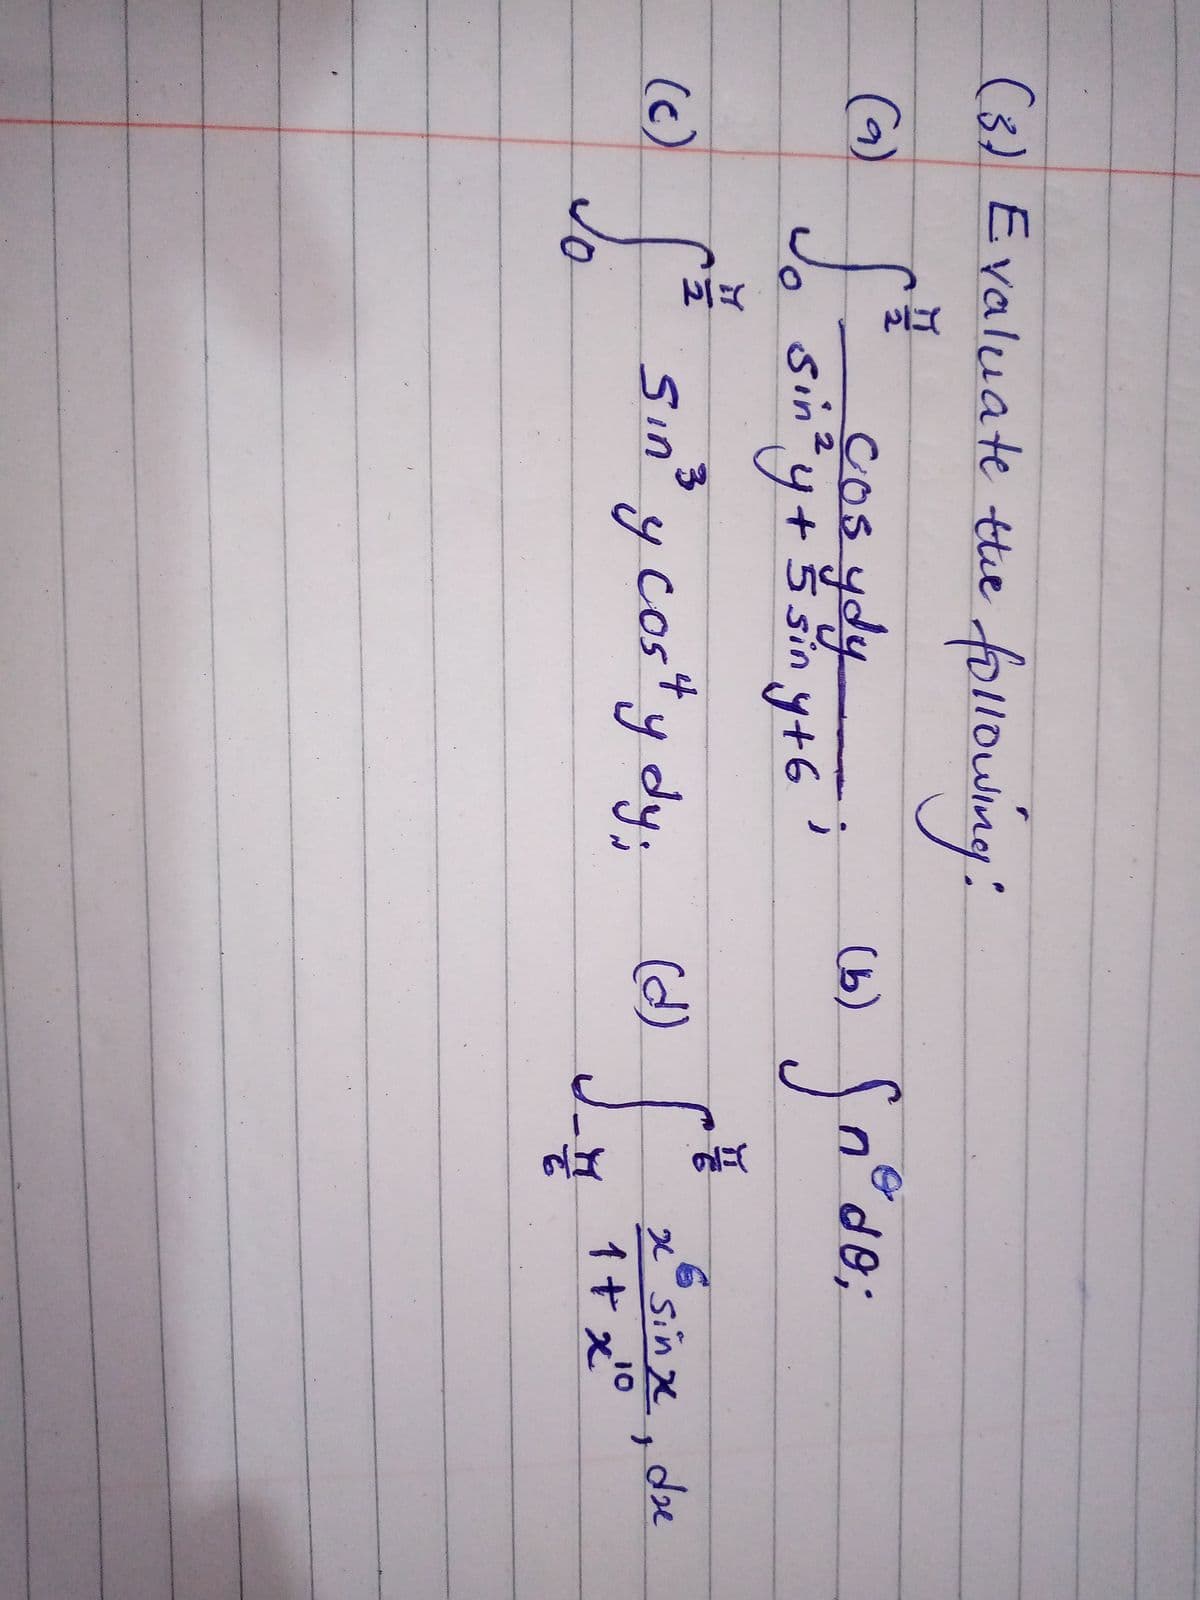 (3) Evaluate the following:
(a) ∫₀^{π/2} cos y dy / (sin² y + 5 sin y + 6) ; (b) ∫ n^θ dθ;
(c) ∫₀^{π/2} sin³ y cos⁴ y dy; (d) ∫_{-π/6}^{π/6} x⁶ sin x / (1 + x¹⁰) , dx